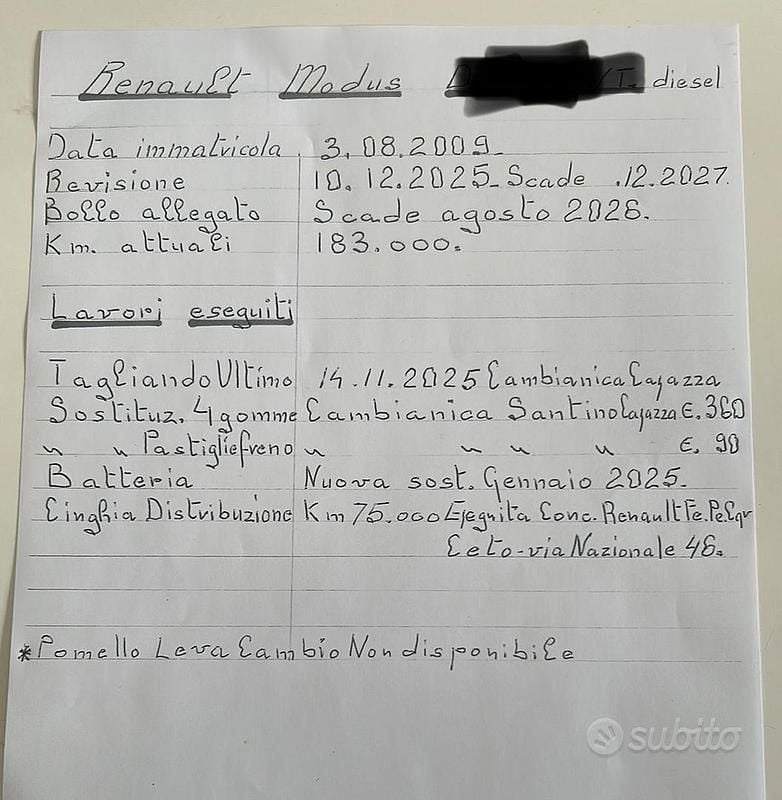 Renault Modus diesel
Data immatricola. 3.08.2009.
Revisione 10.12.2025-Scade .12.2027.
Bollo allegato Scade agosto 2026.
Km. attuali 183.000.
Lavori eseguiti
Tagliando Ultimo 14.11.2025 Cambianica Cagazza
Sostituz. 4 gomme Cambianica Santino Cagazza €. 360
" " Pastiglie freno " " " " €. 90
Batteria Nuova sost. Gennaio 2025.
Cinghia Distribuzione Km 75.000 Eseguita Conc. Renault Fe.Pe.
Ceto-via Nazionale 46.
*Pomello Leva Cambio Non disponibile
subito